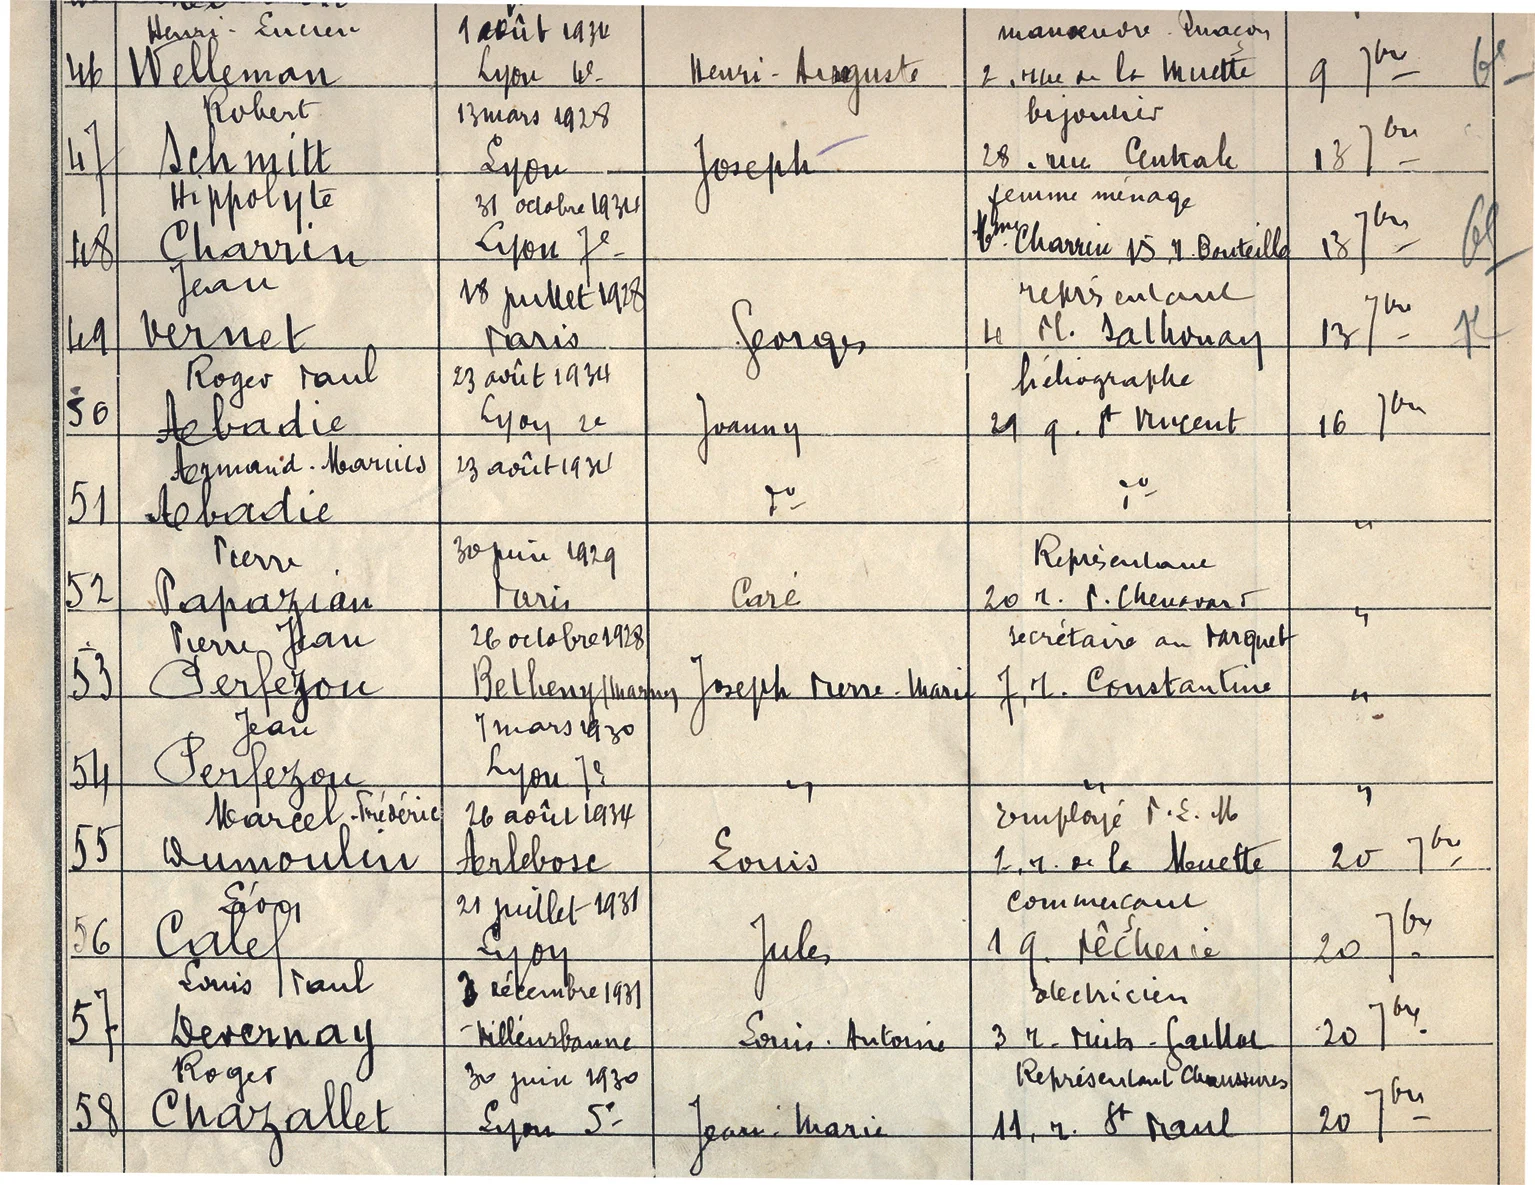 Henri - Lucien 1 août 1934 manœuvre - maçon
46 Welleman Lyon 4e Henri - Auguste 2, rue de la Muette 9 7bre
Robert 13 mars 1928 bijoutier
47 Schmitt Lyon Joseph 28, rue Centrale 13 7bre
Hippolyte 31 octobre 1934 femme ménage
48 Charrin Lyon 7e Mme Charrin 15, r. Bouteille 13 7bre
Jean 18 juillet 1928 représentant
49 Vernet Paris Georges 4 Pl. Sathonay 13 7bre
Roger Paul 23 août 1934 héliographe
50 Abadie Lyon 2e Joanny 29 q. St Vincent 16 7bre
Armand - Marius 23 août 1934
51 Abadie do do "
Pierre 30 juin 1929 Représentant
52 Papazian Paris Caré 20 r. P. Chenavard "
Pierre Jean 26 octobre 1928 secrétaire au Parquet
53 Perfezou Betheny (Marne) Joseph Pierre - Marie 7, r. Constantine "
Jean 7 mars 1930
54 Perfezou Lyon 7e " " "
Marcel - Frédéric 26 août 1934 Employé P. L. M
55 Dumoulin Arlebosc Louis 2, r. de la Muette 20 7bre
Léon 21 juillet 1931 commerçant
56 Calef Lyon Jules 1 q. Pêcherie 20 7bre
Louis Paul 3 décembre 1931 électricien
57 Devernay Villeurbanne Louis - Antoine 3 r. Puits - Gaillot 20 7bre
Roger 30 juin 1930 Représentant Chaussures
58 Chazallet Lyon 5e Jean - Marie 11, r. St Paul 20 7bre